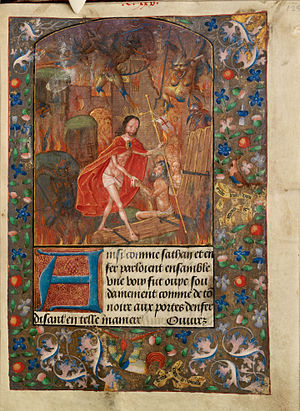 Ainsi comme sathan et en
fer parloient ensamble
vne voix fut ouye sou
damement comme de to
noire aux portes denfer
disant en telle maniere Ouurez